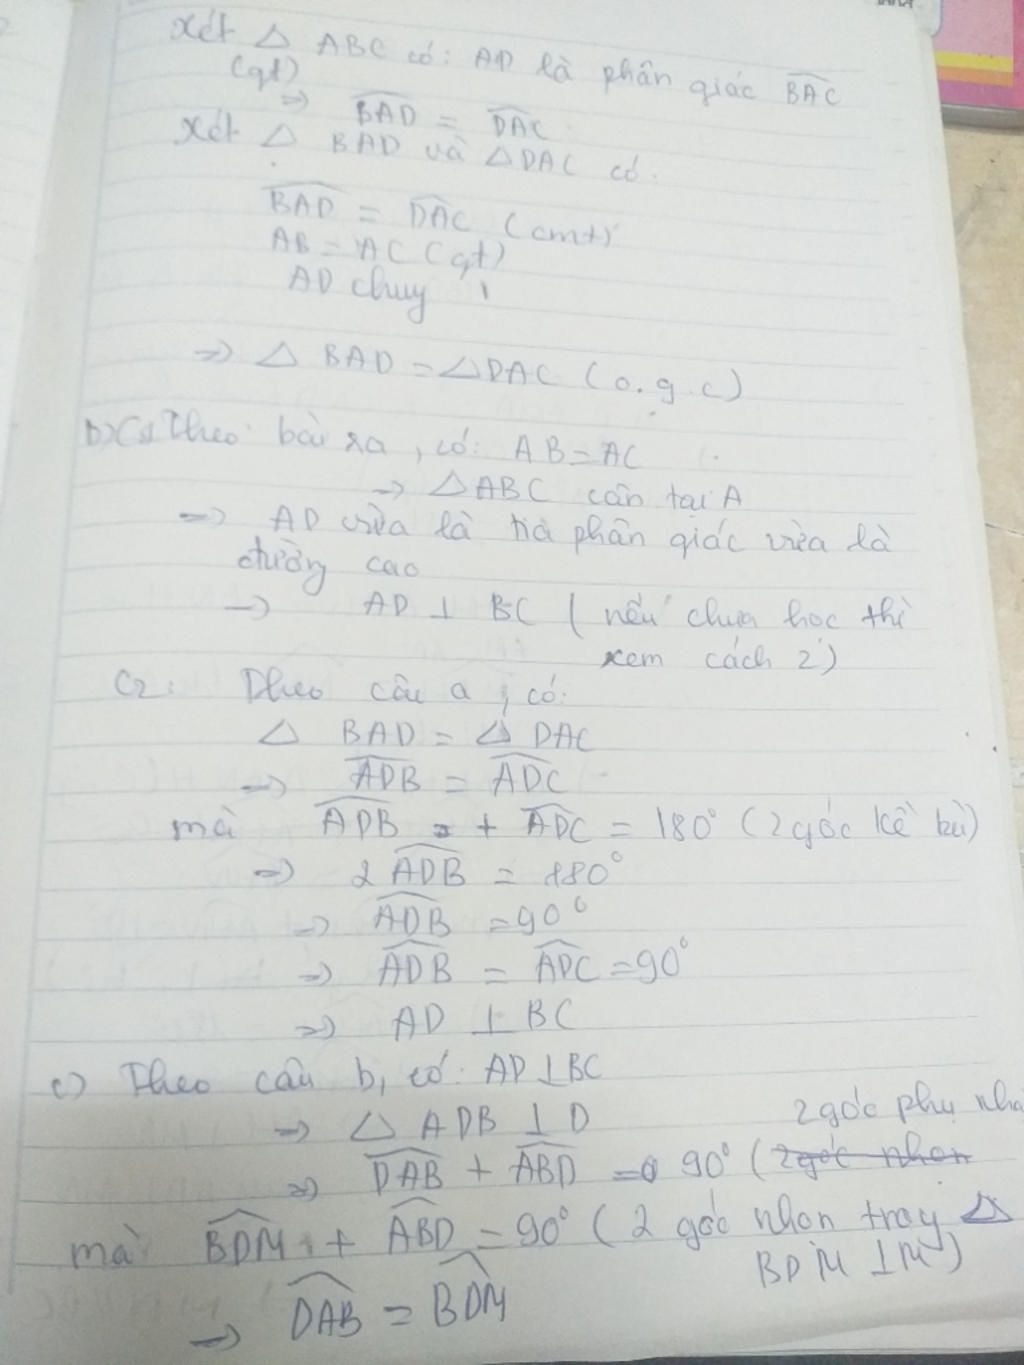 Xét △ ABC có: AD là phân giác \widehat{BAC}
(gt)
=> \widehat{BAD} = \widehat{DAC}
Xét △ BAD và △DAC có.
\widehat{BAD} = \widehat{DAC} (cmt)
AB = AC (gt)
AD chug
=> △ BAD = △DAC (c.g.c)
b) C1 Theo bài ra, có: AB = AC
=> △ABC cân tại A
=> AD vừa là tia phân giác vừa là
đường cao
=> AD ⊥ BC (nếu chưa học thì
xem cách 2)
C2: Theo câu a, có:
△ BAD = △ DAC
=> \widehat{ADB} = \widehat{ADC}
mà \widehat{ADB} + \widehat{ADC} = 180° (2 góc kề bù)
=> 2\widehat{ADB} = 180°
=> \widehat{ADB} = 90°
=> \widehat{ADB} = \widehat{ADC} = 90°
=> AD ⊥ BC
c) Theo câu b, có: AD ⊥ BC
=> △ ADB ⊥ D
2 góc phụ nha
=> \widehat{DAB} + \widehat{ABD} = 90° (2 góc nhọn
mà \widehat{BDM} + \widehat{ABD} = 90° (2 góc nhọn trog △
BDM ⊥ M)
=> \widehat{DAB} = \widehat{BDM}